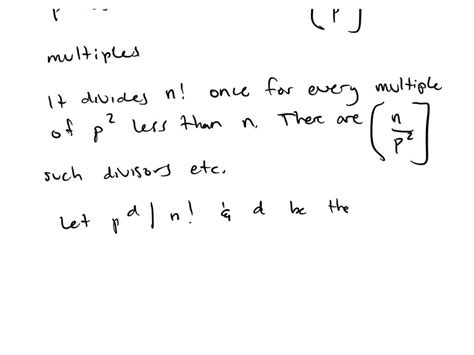 multiples
It divides n! once for every multiple
of p² less than n. There are [n/p²]
such divisors etc.
Let p^d | n! & d be the